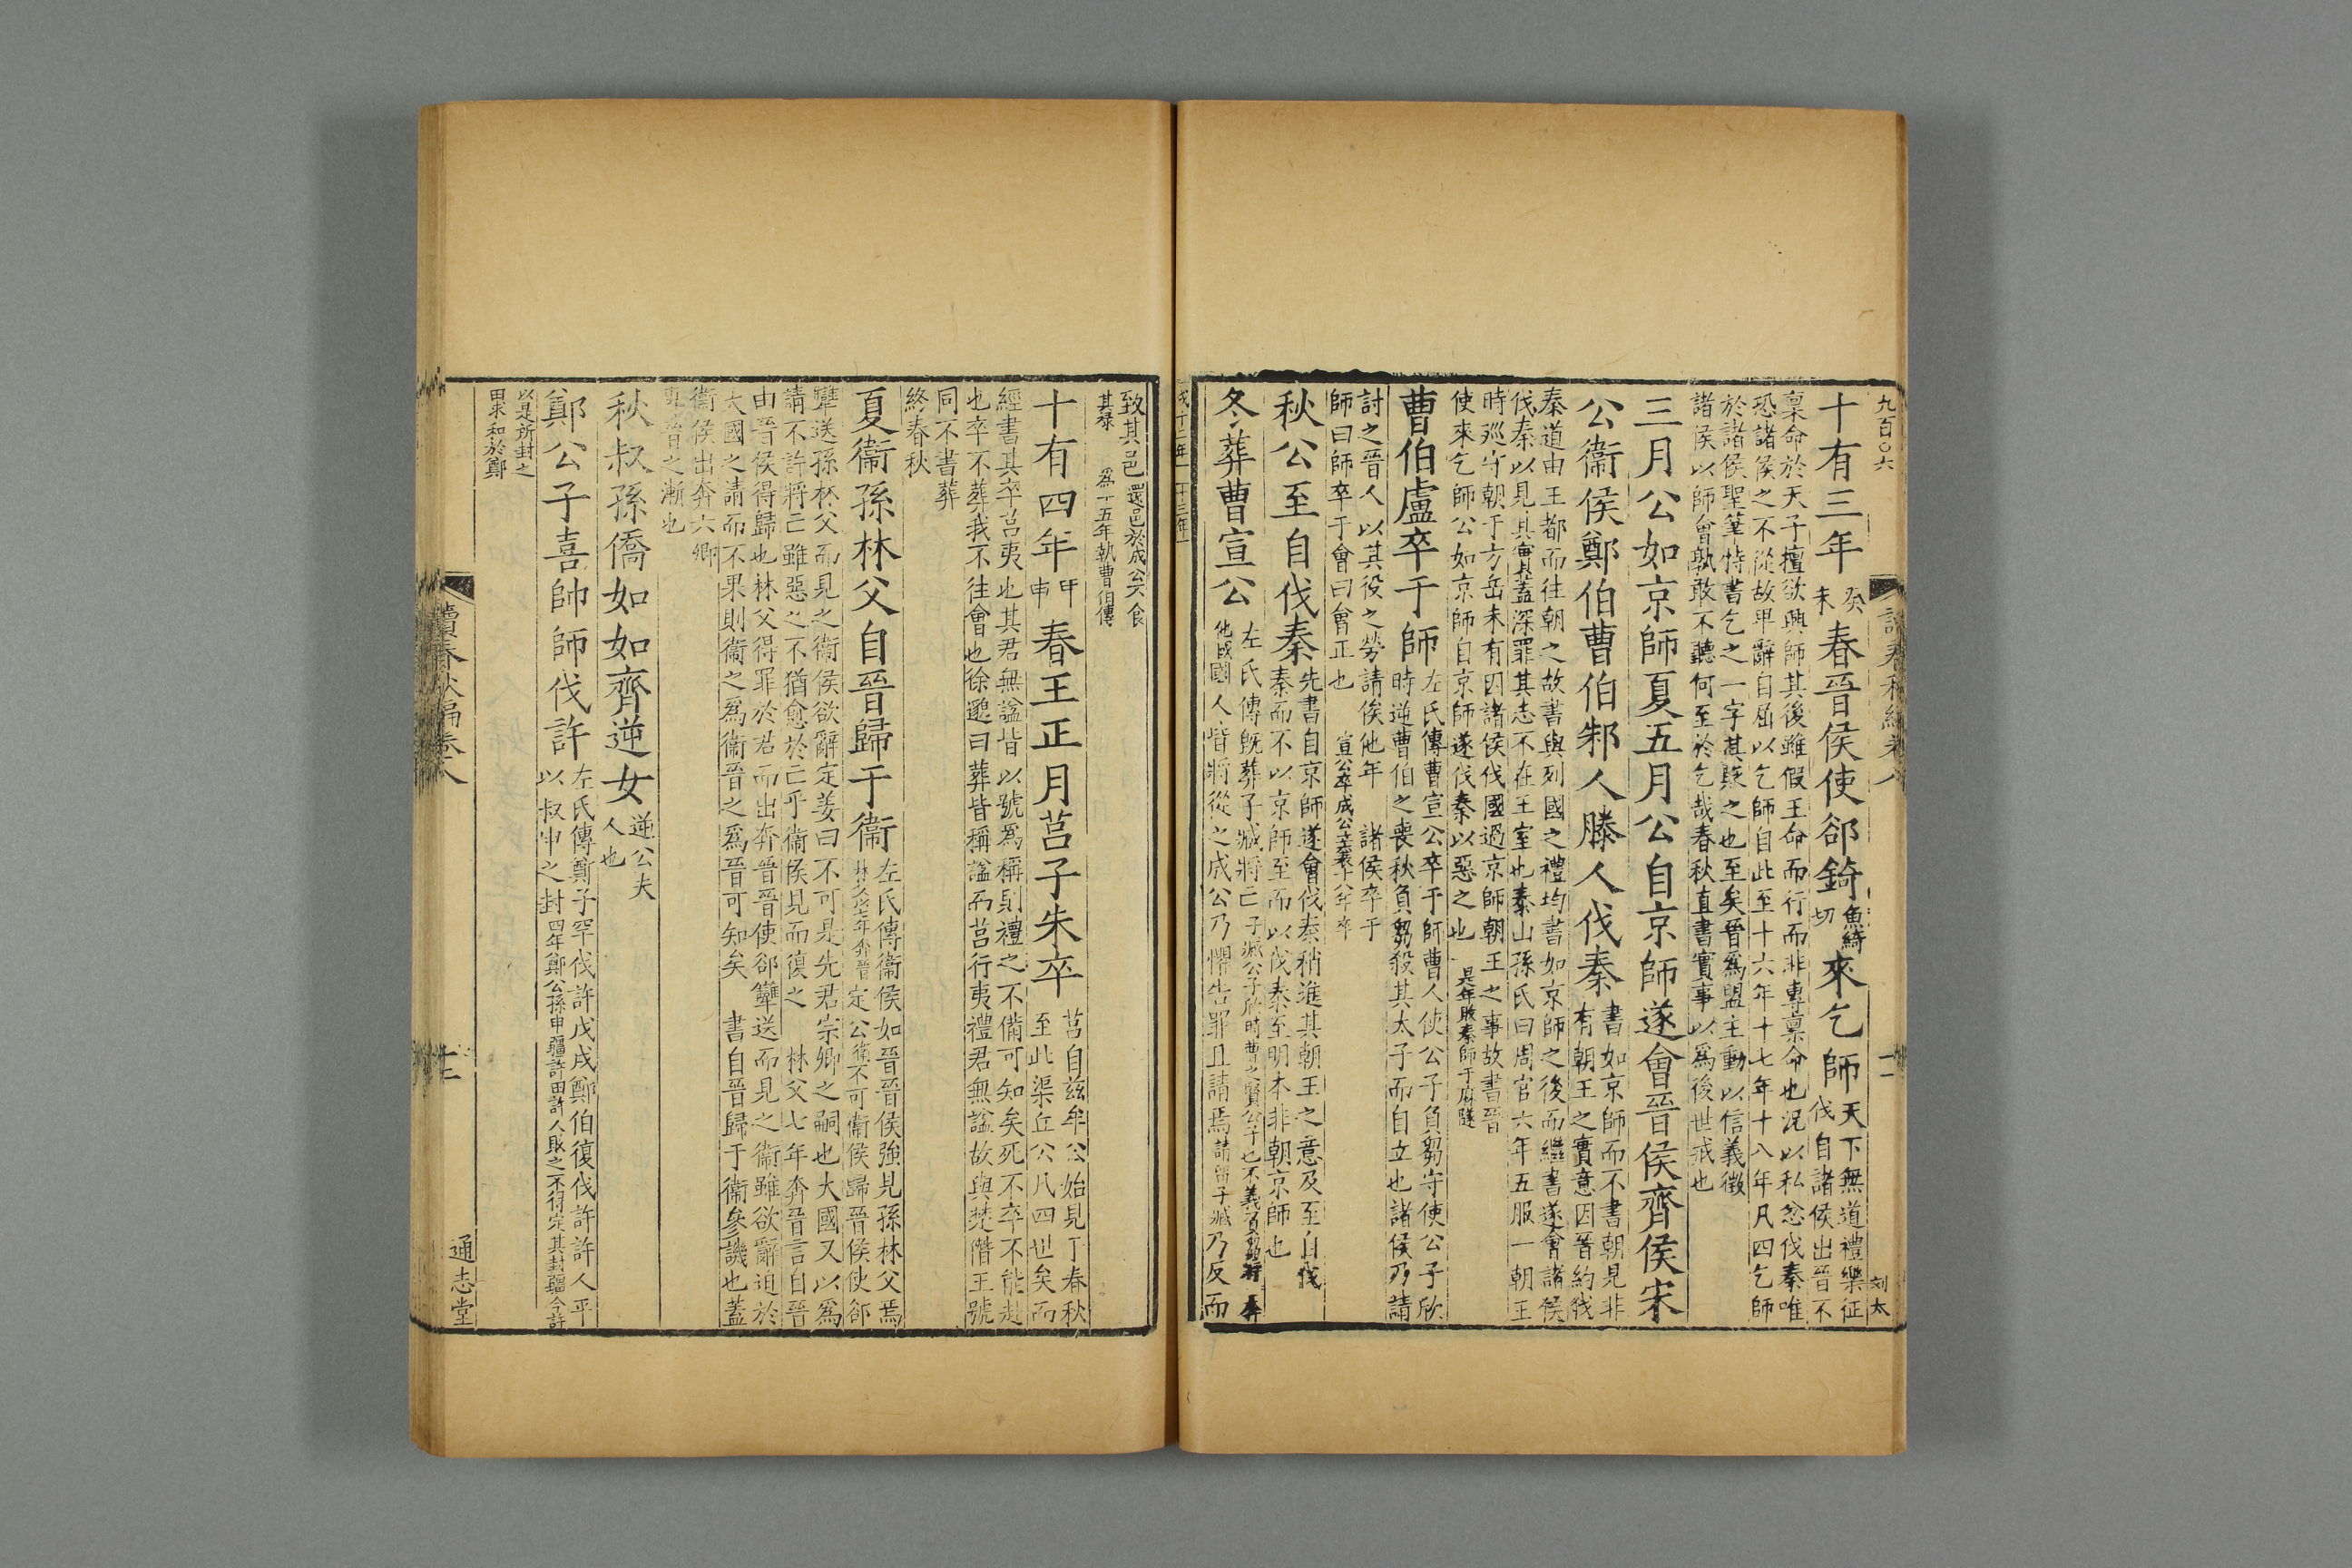 九百〇六
讀春秋編卷八
十一
刻太
十有三年癸未春晉侯使郤錡魚綺切來乞師天下無道禮樂征
伐自諸侯出晉不
稟命於天子擅欲興師其後雖假王命而行而非專稟命也況以私忿伐秦唯
恐諸侯之不從故卑辭自屈以乞師自此至十六年十七年十八年凡四乞師
於諸侯聖筆特書乞之一字甚貶之也至矣晉爲盟主動以信義徵
諸侯以師會孰敢不聽何至於乞哉春秋直書實事以爲後世戒也
三月公如京師夏五月公自京師遂會晉侯齊侯宋
公衞侯鄭伯曹伯邾人滕人伐秦書如京師而不書朝見非
有朝王之實意因晉約伐
秦道由王都而往朝之故書與列國之禮均書如京師之後而繼書遂會諸侯
伐秦以見其實蓋深罪其志不在王室也秦山孫氏曰周官六年五服一朝王
時巡守朝于方岳未有因諸侯伐國過京師朝王之事故書晉
使來乞師公如京師自京師遂伐秦以惡之也是年敗秦師于麻隧
曹伯盧卒于師左氏傳曹宣公卒于師曹人使公子負芻守使公子欣
時逆曹伯之喪秋負芻殺其太子而自立也諸侯乃請
討之晉人以其役之勞請俟他年宣公卒成公立襄十八年卒諸侯卒于
師曰師卒于會曰會正也
秋公至自伐秦先書自京師遂會伐秦稍進其朝王之意及至自伐
秦而不以京師至而以伐秦至明本非朝京師也
冬葬曹宣公左氏傳旣葬子臧將亡子臧公子欣時曹之賢公子也不義負芻將奔
他國國人皆將從之成公乃懼告罪且請焉請留子臧乃反而
成十二年 十三年
致其邑還邑於成公不食
其祿爲十五年執曹伯傳
十有四年甲申春王正月莒子朱卒莒自茲牟公始見于春秋
至此渠丘公凡四世矣而
經書其卒莒夷也其君無謚皆以號爲稱則禮之不備可知矣死不卒不能赴
也卒不葬我不往會也徐邈曰葬皆稱謚而莒行夷禮君無謚故與楚僭王號
同不書葬
終春秋
夏衞孫林父自晉歸于衞左氏傳衞侯如晉晉侯強見孫林父焉
林父以七年奔晉定公衞不可衞侯歸晉侯使郤
犫送孫林父而見之衞侯欲辭定姜曰不可是先君宗卿之嗣也大國又以爲
請不許將亡雖惡之不猶愈於亡乎衞侯見而復之林父七年奔晉言自晉
由晉侯得歸也林父得罪於君而出奔晉晉使郤犫送而見之衞雖欲辭迫於
大國之請而不果則衞之爲衞晉之爲晉可知矣書自晉歸于衞參譏也蓋
衞侯出奔六卿
專晉之漸也
秋叔孫僑如如齊逆女逆公夫
人也
鄭公子喜帥師伐許左氏傳鄭子罕伐許戊戌鄭伯復伐許許人平
以叔申之封四年鄭公孫申疆許田許人敗之不得定其封疆今許
以是所封之
田求和於鄭
讀春秋編卷八
十二
通志堂